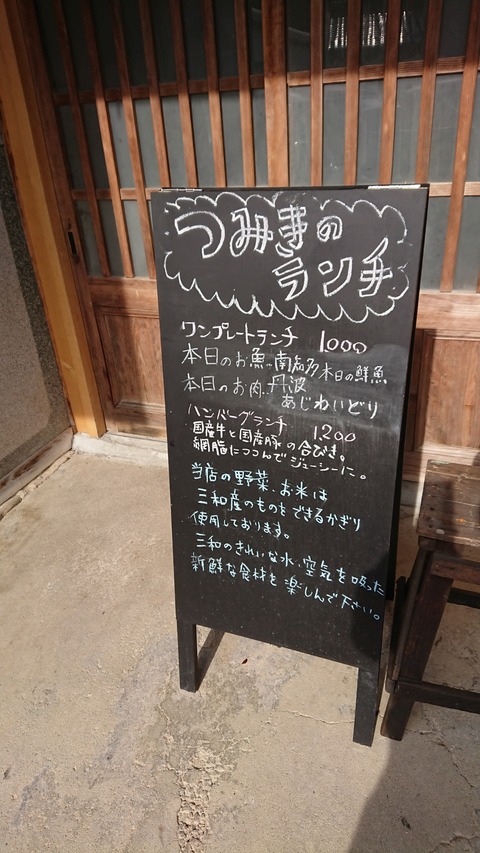 つみきの
ランチ
ワンプレートランチ 1000
本日のお魚…南知多本日の鮮魚
本日のお肉…丹波
あじわいどり
ハンバーグランチ 1,200
国産牛と国産豚の合びき。
網脂につつんでジューシーに。
当店の野菜、お米は
三和産のものをできるかぎり
使用しております。
三和のきれいな水、空気を吸った
新鮮な食材を楽しんで下さい。